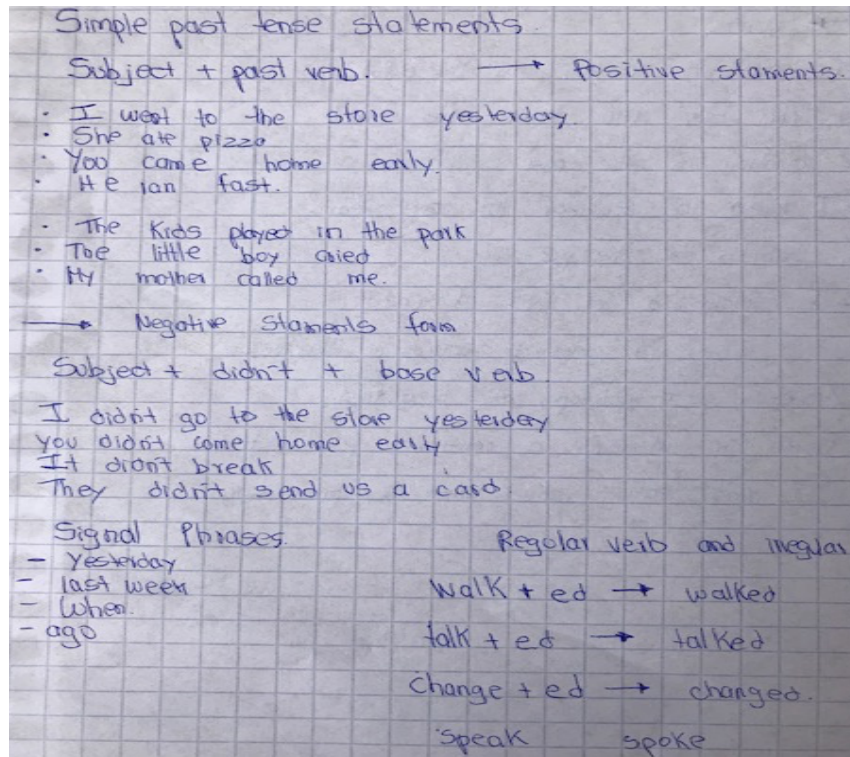 Simple past tense statements.
Subject + past verb. → Positive staments.
· I went to the store yesterday.
· She ate pizza
· You came home early.
· He ran fast.
· The Kids played in the park
· The little boy cried
· My mother called me.
→ Negative staments form
Subject + didn't + base verb.
I didn't go to the store yesterday
you didn't come home early
It didn't break
They didn't send us a card.
Signal Phrases.
- Yesterday
- last week
- When.
- ago
Regular verb and irregular
walk + ed → walked
talk + ed → talked
Change + ed → changed.
speak spoke